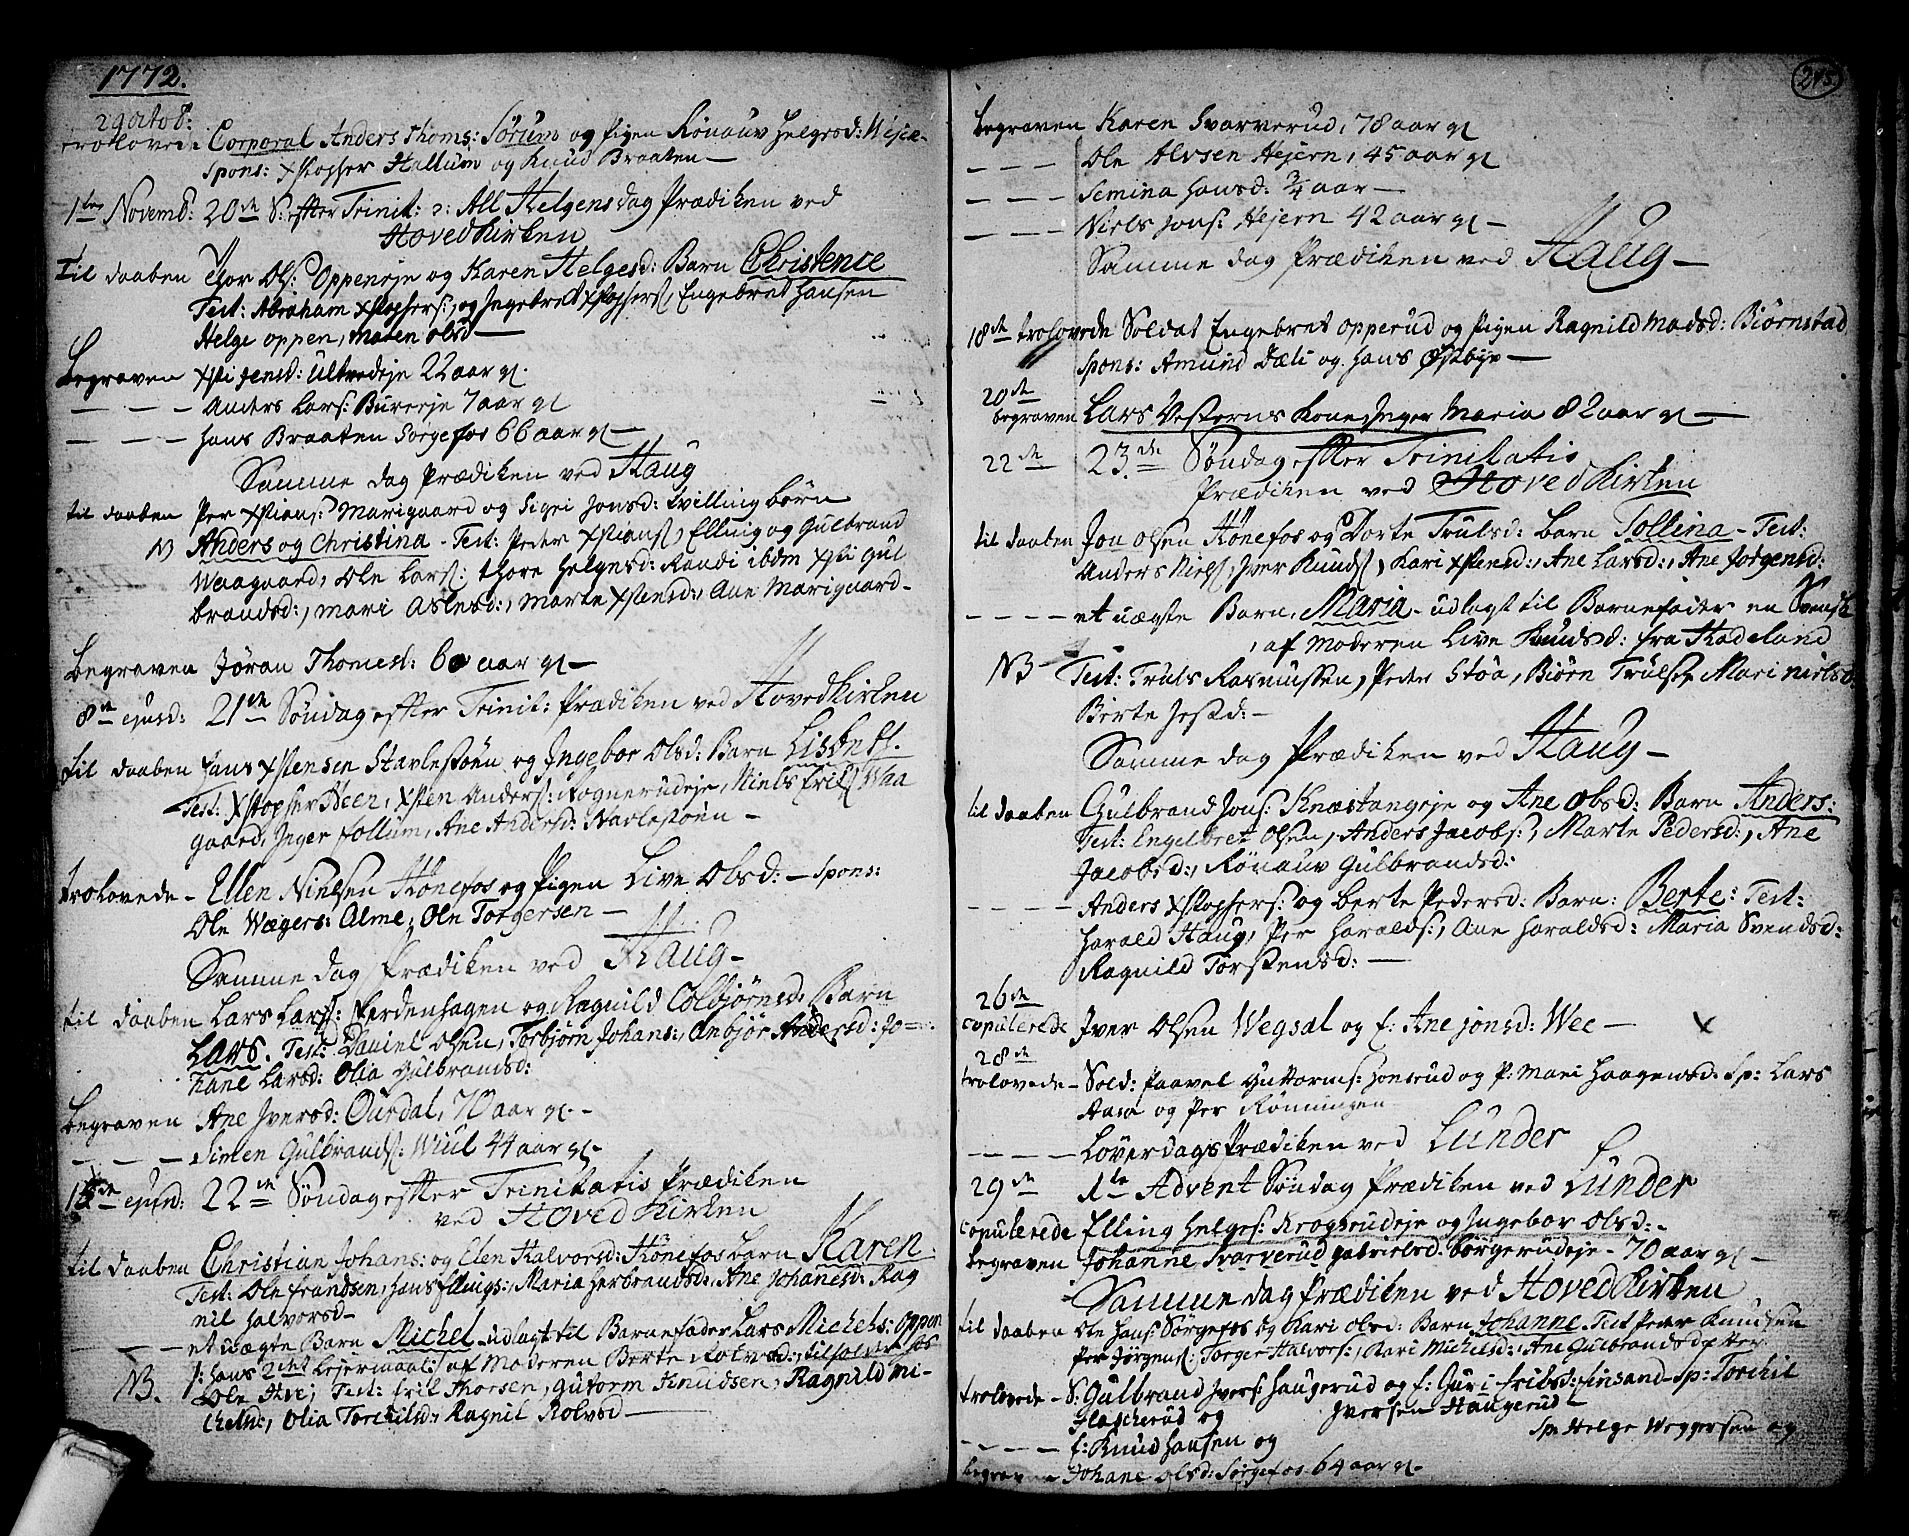 1772.
29 octob:
trolovede Corporal Anders Thoms: Sørum og Pigen Rønauv Helgesd:
Spons: Xstopher Hallum og Knud Braaten —
1te Novemb: 20de S: effter Trinit: ɔ: All Helgens dag Prædiken ved
Hoved Kirken
Til daaben Thor Ols: Oppeneje og Karen Helgesd: Barn Christence
Test: Abraham Xstophers:, og Ingebret Xstophers:, Engebret Hansen
Helge oppen, Maren olsd —
Begraven Xsti Jensd: Ultvedeje 22 aar gl.
— — — Anders Lars: Burereje 7 aar gl
— — — Hans Braaten Sørgefos 66 aar gl —
Samme dag Prædiken ved Haug
til daaben Per Xstians: Marigaard og Sigri Jonsd: tvilling børn
NB Anders og Christina - Test: Peder Xstians:, Elling og Gulbrand
Waagaard, Ole Lars:, Thore Helgesd: Randi ibdm Xsti Gul
brandsd:, Mari Aslesd:, Marte Xstensd:, Ane Marigaard -
Begraven Jøran Thomesd: 60 aar gl —
8de ejusd: 21de Søndag effter Trinit: Prædiken ved Hoved Kirken
til daaben Hans Xstensen Stavlestøen og Ingebor Olsd: Barn Lisbeth.
Test: Xstopher Heen, Xsten Anders: Rognerudeje, Niels Erils: Waa
gaard, Inger Follum, Ane Andersd: Navlestøen —
trolovede - Ellen Nielsen Hønefos og Pigen Live Olsd: — Spons:
Ole Wægers: Alme, Ole Torgersen —
Samme dag Prædiken ved Haug —
til daaben Lars Lars: Perdenhagen og Ragnild Colbjørnsd: Barn
Lars. Test: Daniel Olsen, Torbjørn Johans:, Anbjør Andersd: Jo=
hane Larsd: Olia Gulbrandsd:
Begraven Ane Iversd: Ourdal, 70 aar gl. -
— — — Simen Gulbrands: Wiul 44 aar gl -
15de ejusd: 22de Søndag effter Trinitatis Prædiken
ved Hoved Kirken
til daaben Christian Johans: og Elen Halvorsd: Hønefos barn Karen
Test: Ole Frandsen, Hans Ellings:, Maria Herbrandsd:, Ane Johanesd: Rag
nil Halvorsd —
— — — et uægte Barn Michel udlagt til Barnefader Lars Michels: oppen
NB. /: hans 2det Lejermaal :/ af Moderen Berte Rolvsd:,
Ole Test: Eril Thorsen, Gutorm Knudsen, Ragnild Mi-
chelsd:, Olia Torchilsd:, Ragnil Rolvsd —
245
Begraven Karen Svarverud, 78 aar gl
— — — Ole Alvsen Hejern, 45 aar gl
— — — Semina Hansd: ¾ aar —
— — — Niels Jons: Hejern 42 aar gl —
Samme dag Prædiken ved Haug —
18de trolovede Soldat Engebret opperud og Pigen Ragnild Madsd: Biørnstad
Spons: Amund Dæli og Hans Østbye —
20de
begraven Lars Vesterns Kone Inger Maria 82 aar gl —
22de 23de Søndag effter Trinitatis
Prædiken ved Hoved Kirken
til daaben Jon Olsen Hønefos og Dorte Trulsd: barn Tollina - Test:
Anders Niels:, Iver Knuds:, Kari Xstensd:, Ane Larsd:, Ane Jørgensd:
— — — et uægte Barn, Maria - udlagt til Barnefader en Svensk
, af Moderen Live Knudsd: fra Hadeland
NB — Test: Truls Rasmussen, Peder Støa, Biørn Trulsen, Mari Nielsd.
Berte Jesd: —
Samme dag Prædiken ved Haug —
til daaben Gulbrand Jons: Knæstangeje og Ane Olsd: Barn Anders:
Test: Engelbret Olsen, Anders Jacobs:, Marte Pedersd:, Ane
Jacobsd:, Rønauv Gulbrandsd:
— — — Anders Xstophers: og Berte Pedersd: Barn: Berte: Test:
Harald Haug, Per Haralds:, Ane Haraldsd: Maria Svendsd:
Ragnild Torstensd: —
26de
copulerede Iver Olsen Wegsal og E: Ane Jonsd: Wee — x
28de
trolovede - Sold: Paavel Guttorms: Honerud og P: Mari Haagensd: Sp: Lars
Aasa og Per Rønningen
— — — Løverdags Prædiken ved Lunder
29de 1te Advent Søndag Prædiken ved Lunder
copulerede Elling Helges: Krogsrudeje og Ingebor Olsd: -
begraven Johanne Svarverud Gabrielsd. Børgerudeje - 70 aar gl —
Samme dag Prædiken ved Hoved Kirken
til daaben Ole Hans: Sørgefos og Kari Olsd: Barn Johanne - Test Peder Knudsen
Per Jørgens:, Torger Halvors:, Kari Michelsd:, Ane Gulbrandsd
trolovede — S: Gulbrand Ivers: Haugerud og E: Guri Erilsd: Finsand — Sp: Torchil
Flascherud og Iversen Haugerud —
— — — E: Knud Hansen og Sp: Helge Weggersen og
begraven Johane Olsd: Sørgefos 64 aar gl -